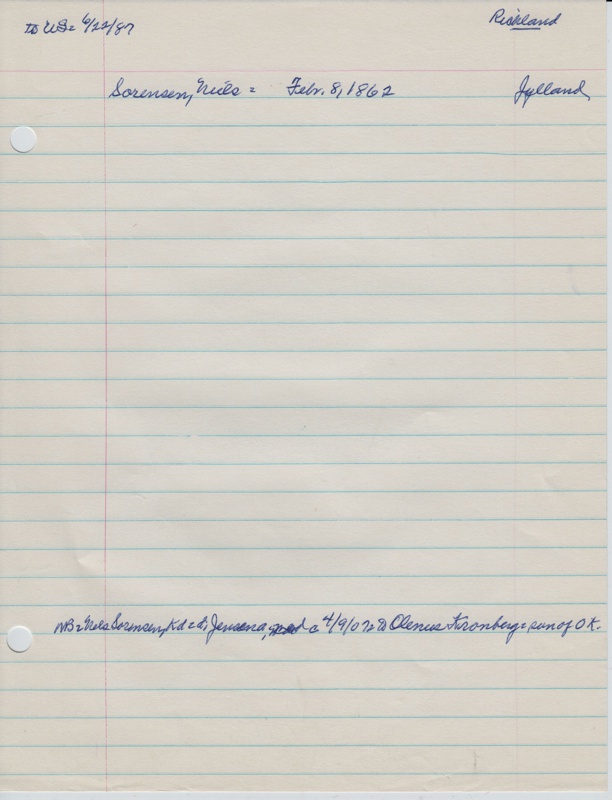 to US= 6/22/87
Rickland
Sorensen, Niels = Febr. 8, 1862
Jylland,
NB= Nels Sorensen, Kd = d, Jensena, c 4/9/07 = to Olenus Kronberg = son of O K.